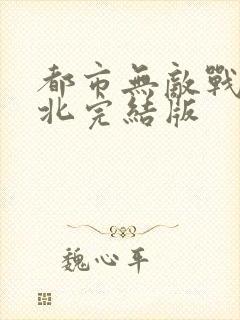 都市無敵戰
北完結版
魏心平